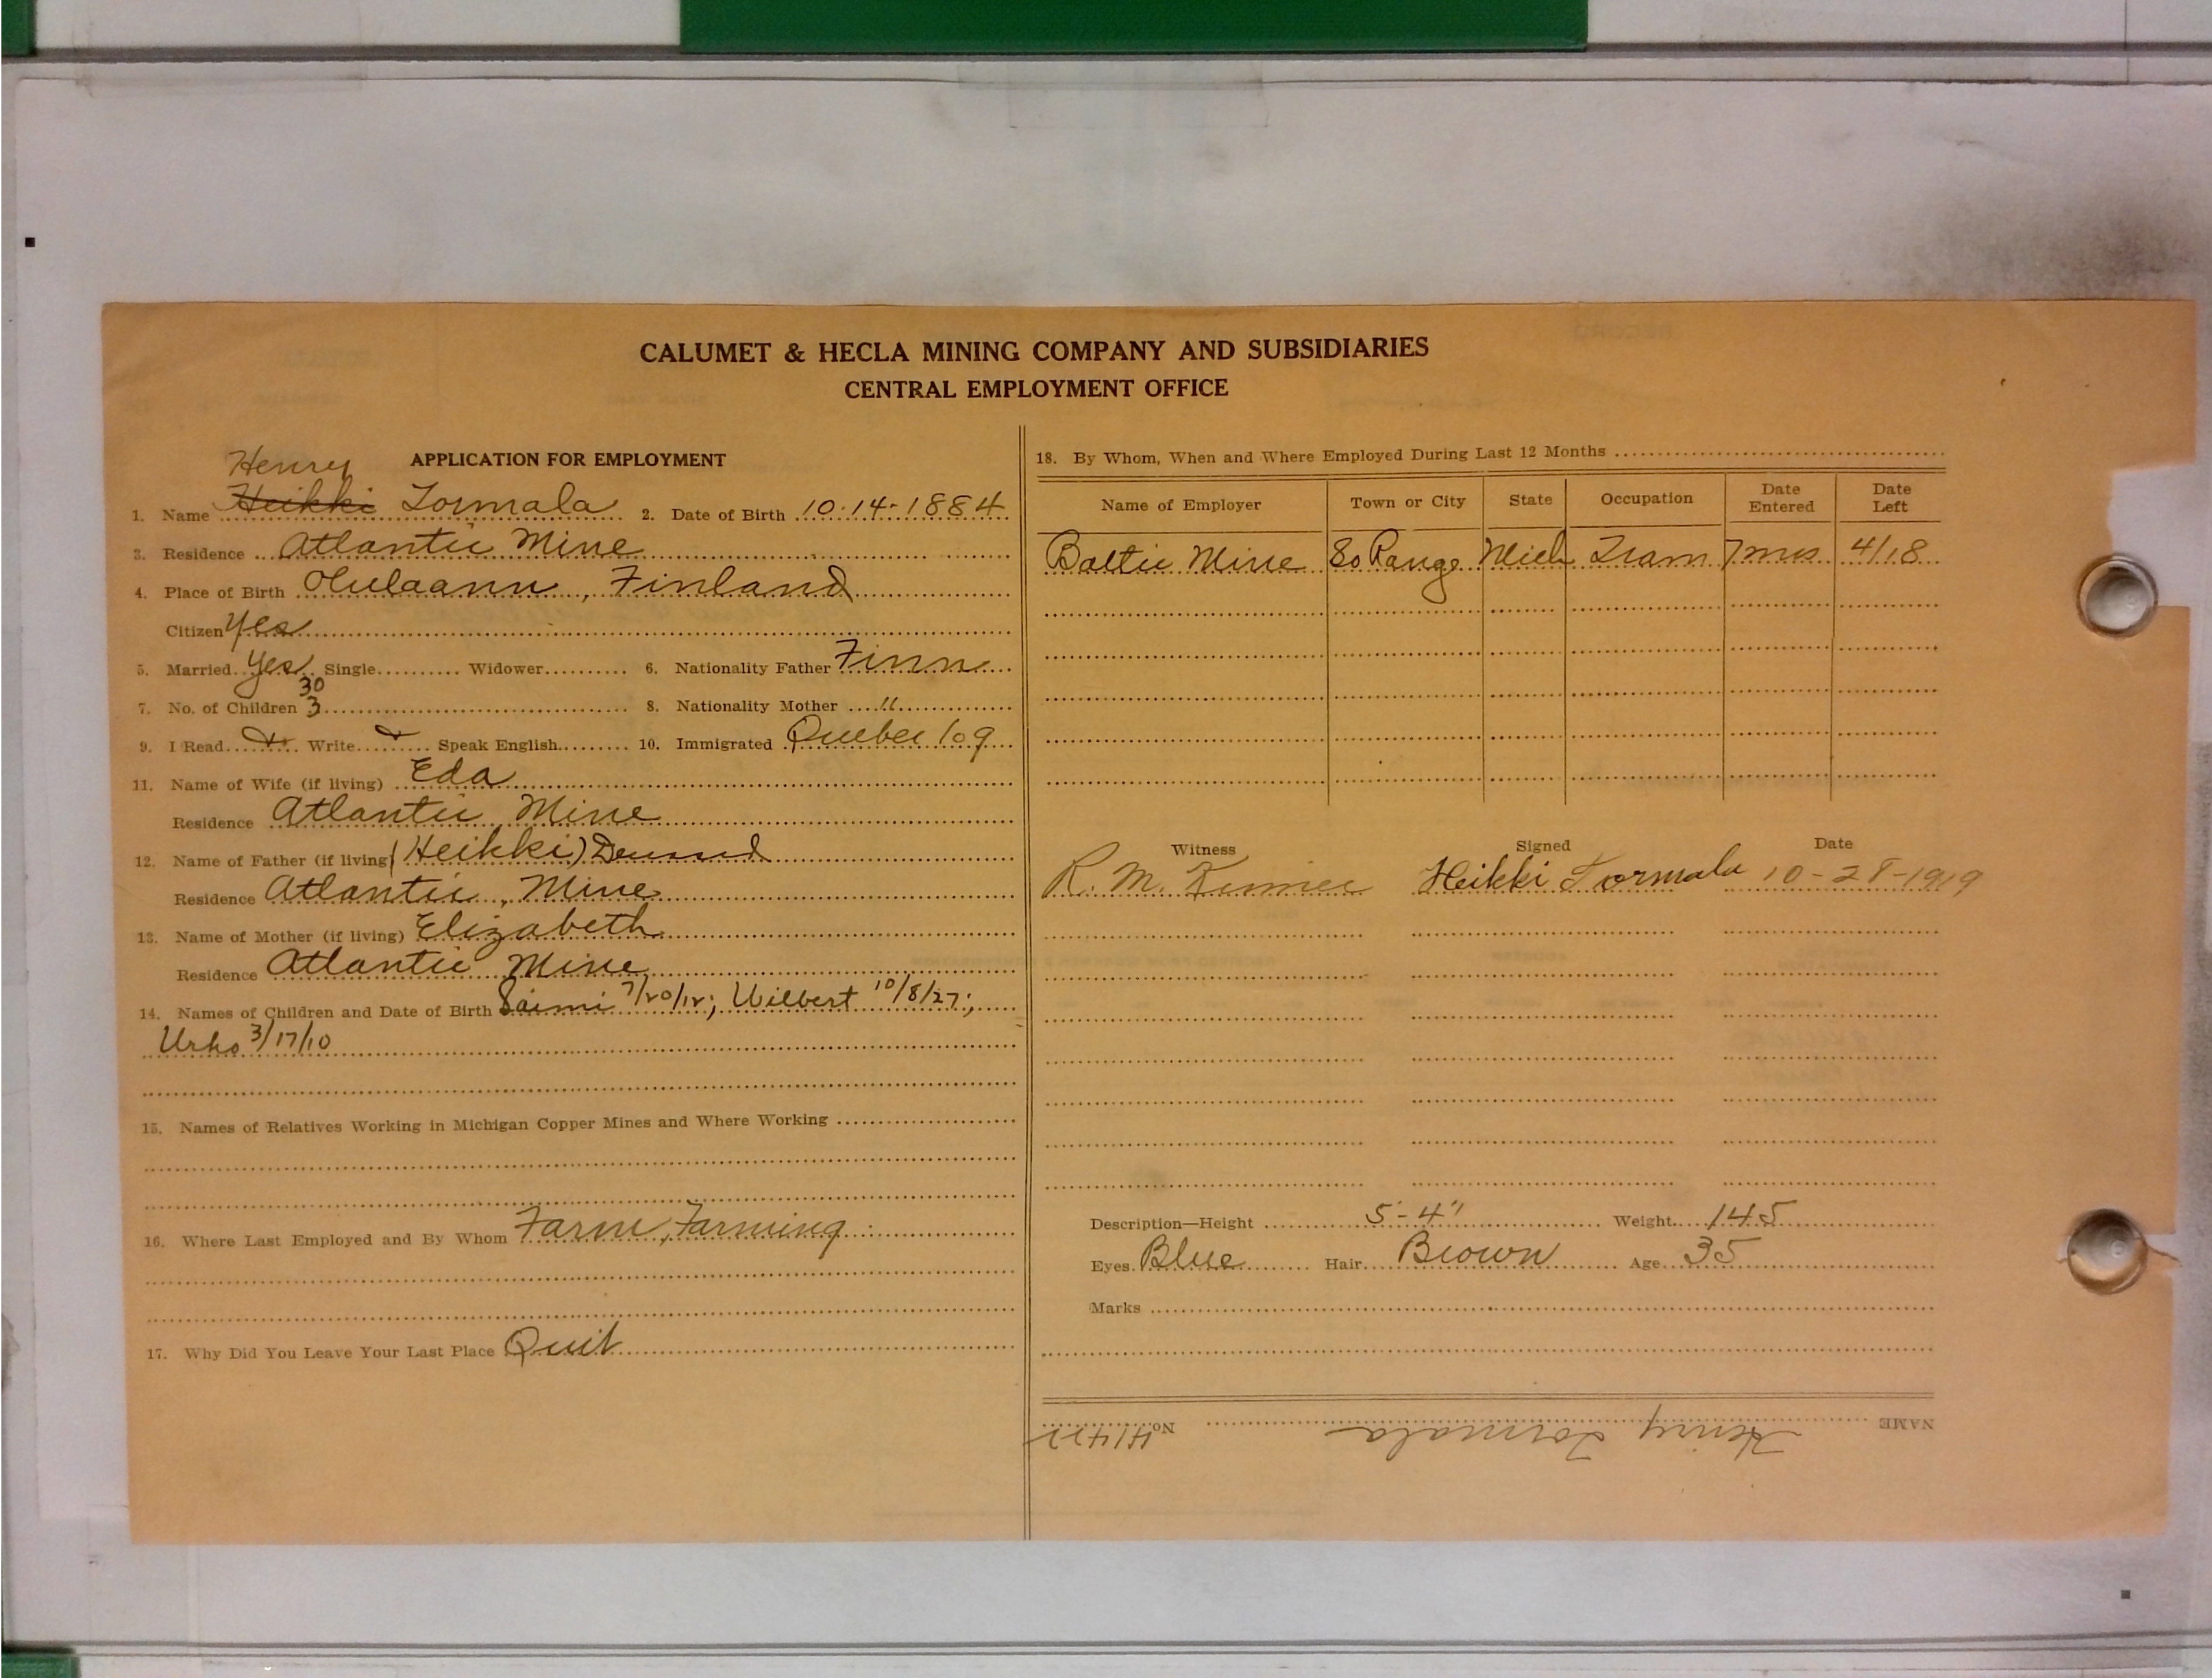 CALUMET & HECLA MINING COMPANY AND SUBSIDIARIES
CENTRAL EMPLOYMENT OFFICE
APPLICATION FOR EMPLOYMENT
Henry
1. Name Heikki Tormala 2. Date of Birth 10-14-1884
3. Residence Atlantic Mine
4. Place of Birth , Finland
Citizen Yes
5. Married Yes Single Widower 6. Nationality Father Finn
30
7. No. of Children 3 8. Nationality Mother "
9. I Read Write Speak English 10. Immigrated Quebec 109
11. Name of Wife (if living) Eda
Residence Atlantic Mine
12. Name of Father (if living) (Heikki) Deceased
Residence Atlantic, Mine
13. Name of Mother (if living) Elizabeth
Residence Atlantic Mine
14. Names of Children and Date of Birth Saimi 7/20/12; Wilbert 10/8/27;
Urho 3/17/10
15. Names of Relatives Working in Michigan Copper Mines and Where Working
16. Where Last Employed and By Whom Farm, Farming
17. Why Did You Leave Your Last Place Quit
18. By Whom, When and Where Employed During Last 12 Months
Name of Employer Town or City State Occupation Date Entered Date Left
Baltic Mine So Range Mich Tram 7 mos. 4/18
Witness Signed Date
R. M. Heikki Tormala 10-28-1919
Description—Height 5-4" Weight 145
Eyes Blue Hair Brown Age 35
Marks
NAME Henry Tormala No. 41422